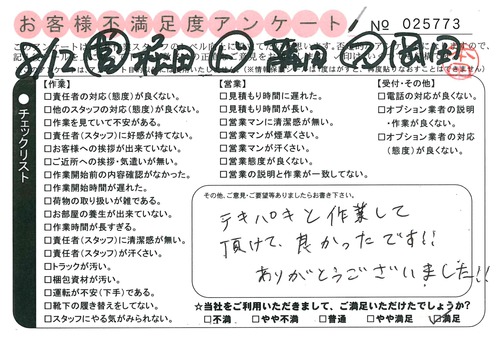 お客様不満足度アンケート
No 025773
8/12
【作業】
□責任者の対応(態度)が良くない。
□他のスタッフの対応(態度)が良くない。
□作業を見ていて不安がある。
□責任者(スタッフ)に好感が持てない。
□お客様への挨拶が出来ていない。
□ご近所への挨拶・気遣いが無い。
□作業開始前の内容確認がなかった。
□作業開始時間が遅れた。
□荷物の取り扱いが雑である。
□お部屋の養生が出来ていない。
□作業時間が長すぎる。
□責任者(スタッフ)に清潔感が無い。
□責任者(スタッフ)が汗くさい。
□トラックが汚い。
□梱包資材が汚い。
□運転が不安(下手)である。
□靴下の履き替えをしてない。
□スタッフにやる気がみられない。
【営業】
□見積もり時間に遅れた。
□見積もり時間が長い。
□営業マンに清潔感が無い。
□営業マンが煙草くさい。
□営業マンが汗くさい。
□営業態度が良くない。
□営業の説明と作業が一致してない。
【受付・その他】
□電話の対応が良くない。
□オプション業者の説明
・作業が良くない。
□オプション業者の対応
(態度)が良くない。
●チェックリスト
その他、ご意見・ご要望等ありましたらお書き下さい。
テキパキと作業して
頂けて、良かったです!!
ありがとうございました!!
☆当社をご利用いただきまして、ご満足いただけたでしょうか?
□不満 □やや不満 □普通 □やや満足 ☑満足